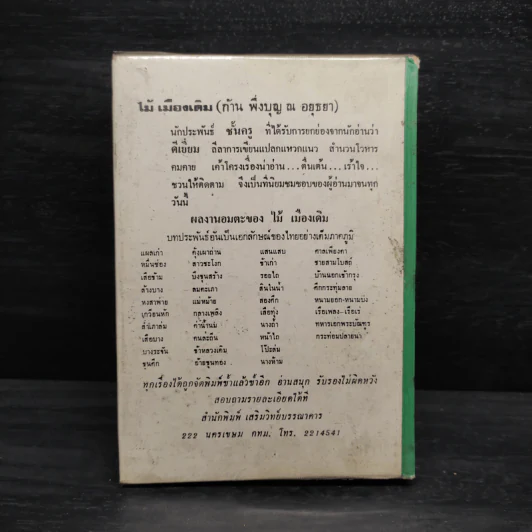 ไม้ เมืองเดิม (ก้าน พึ่งบุญ ณ อยุธยา)
นักประพันธ์ ชั้นครู ที่ได้รับการยกย่องจากนักอ่านว่า
ดีเยี่ยม ลีลาการเขียนแปลกแหวกแนว สำนวนโวหาร
คมคาย เค้าโครงเรื่องน่าอ่าน...ตื่นเต้น...เร้าใจ...
ชวนให้ติดตาม จึงเป็นที่นิยมชมชอบของผู้อ่านมาจนทุก
วันนี้
ผลงานอมตะของ ไม้ เมืองเดิม
บทประพันธ์อันเป็นเอกลักษณ์ของไทยอย่างเต็มภาคภูมิ
แผลเก่า คุ้งเผาถ่าน แสนแสบ ศาลเพียงตา
หมื่นซ่อง สาวชะโงก ข้าเก่า ชายสามโบสถ์
เสือข้าม บึงขุนสร้าง รอยไถ บ้านนอกเข้ากรุง
ล้างบาง ลมคะเภา สินในน้ำ ศึกกระทุ่มลาย
หงสาพ่าย แม่หม้าย สองศึก หนามยอก-หนามบ่ง
เกวียนหัก กลางเพลิง เสือทุ่ง เรือเพลง-เรือเร่
สำเภาล่ม ค่าน้ำนม นางถ้ำ ทหารเอกพระบัณฑูร
เสือบาง คนละถิ่น หน้าไถ กระท่อมปลายนา
บางระจัน ข้าหลวงเดิม โป๊ะล่ม
ขุนศึก อ้ายขุนทอง นางห้าม
ทุกเรื่องได้ถูกจัดพิมพ์ซ้ำแล้วซ้ำอีก อ่านสนุก รับรองไม่ผิดหวัง
สอบถามรายละเอียดได้ที่
สำนักพิมพ์ เสริมวิทย์บรรณาคาร
222 นครเขษม กทม. โทร. 2214541